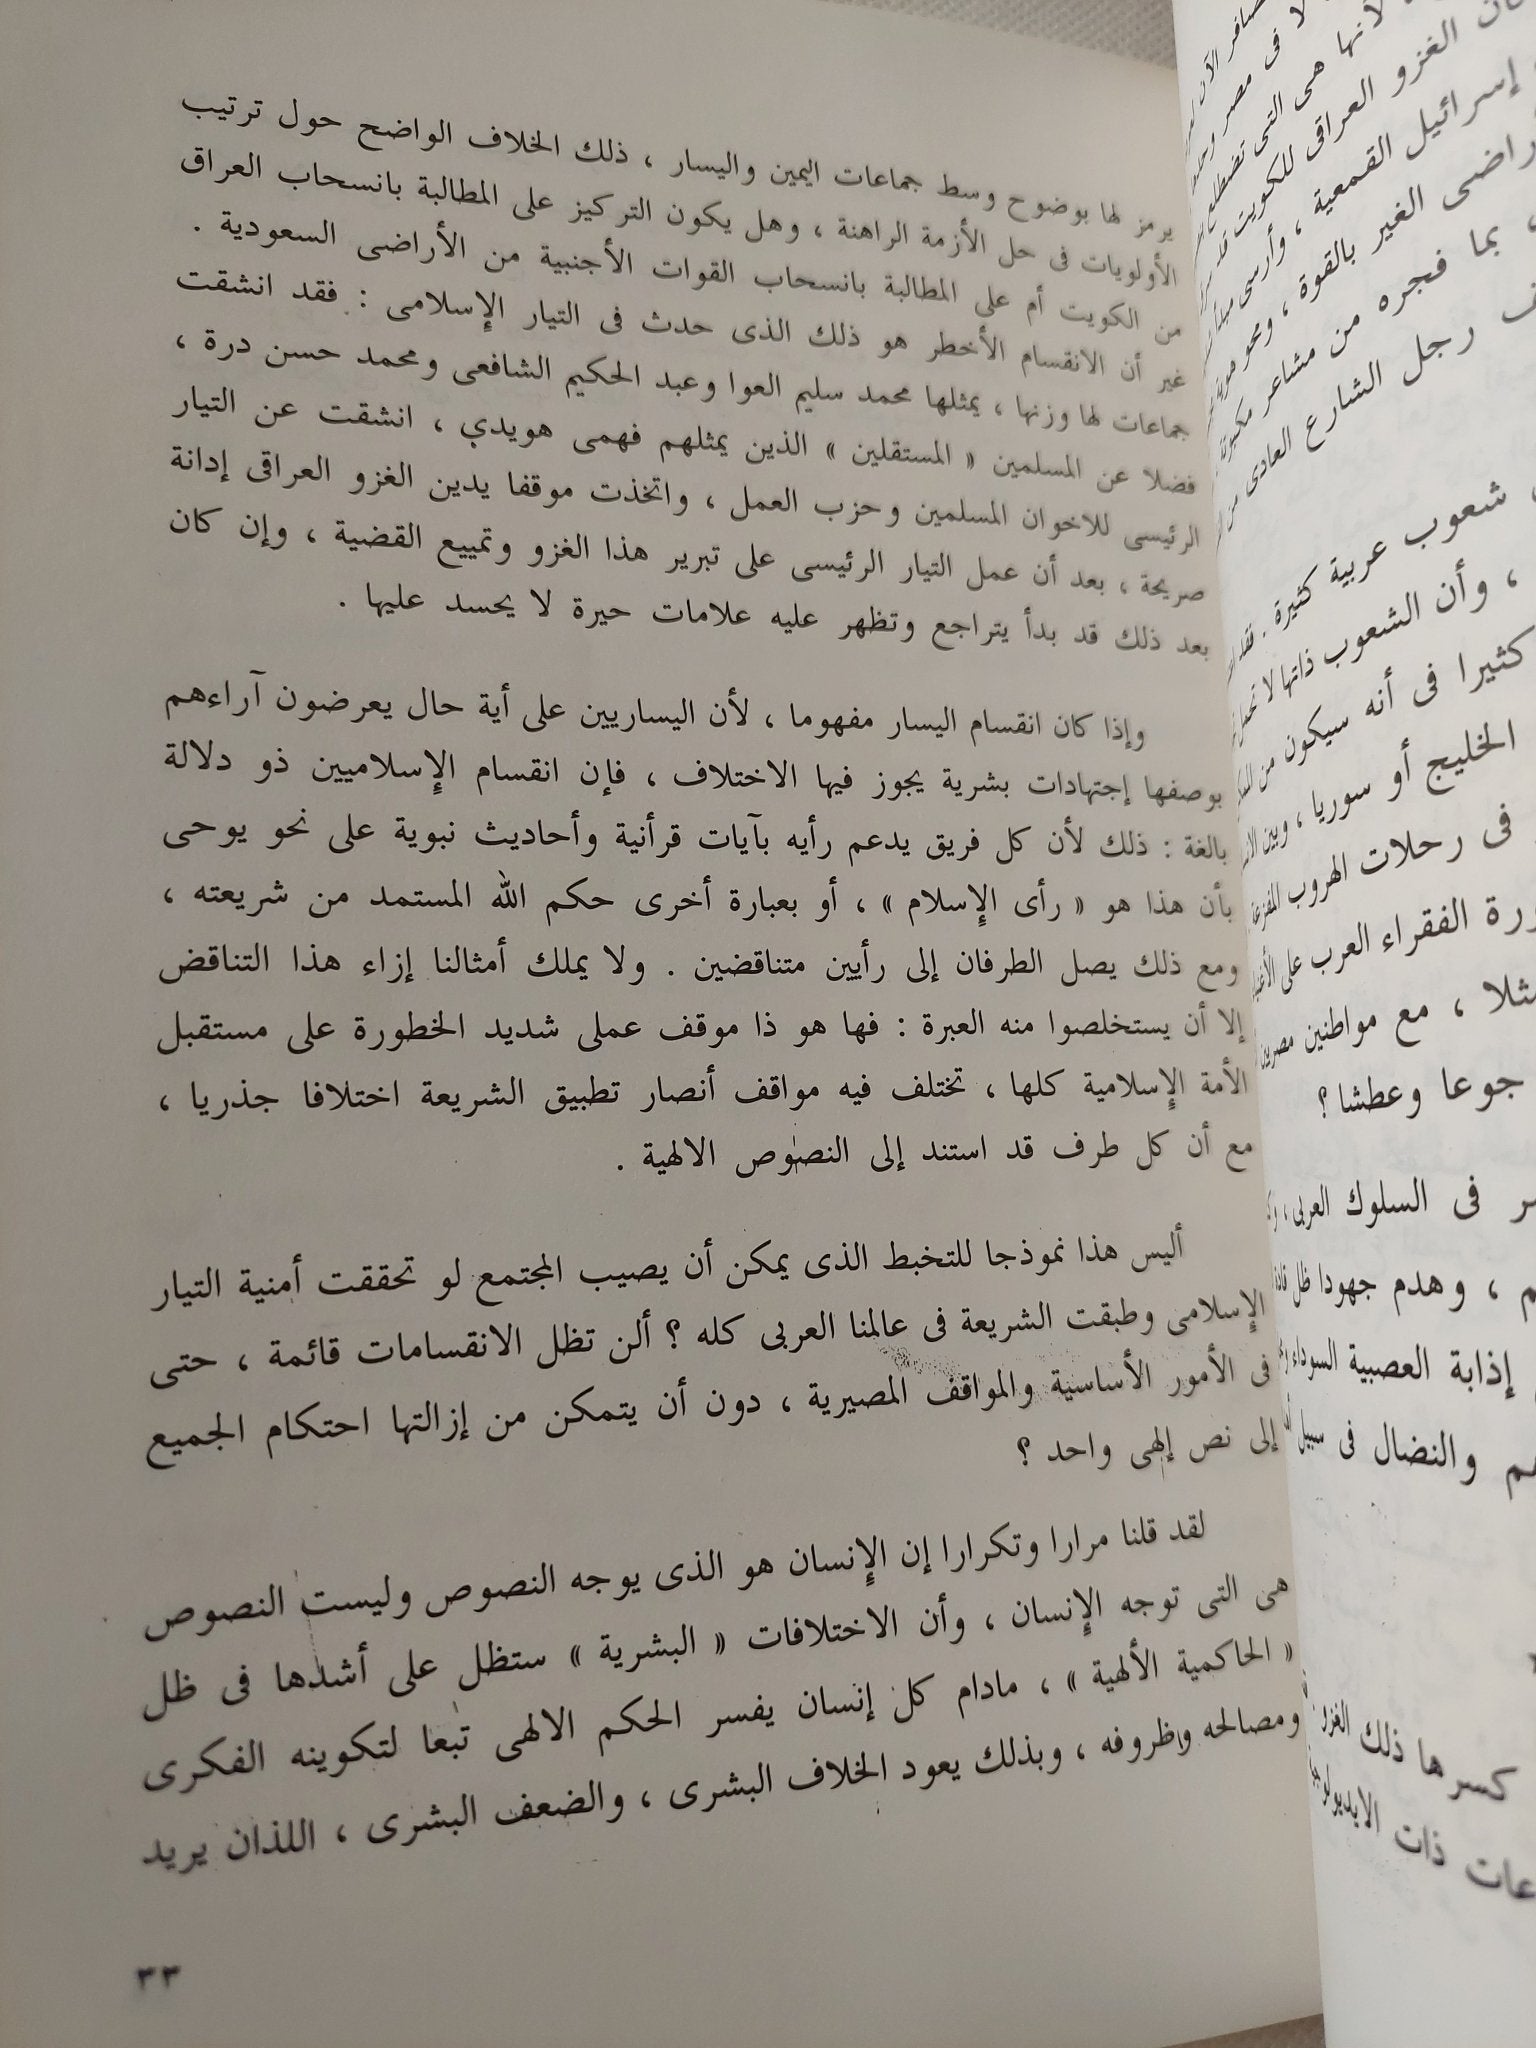 يرمز لها بوضوح وسط جماعات اليمين واليسار ، ذلك الخلاف الواضح حول ترتيب
الأولويات فى حل الأزمة الراهنة ، وهل يكون التركيز على المطالبة بانسحاب العراق
من الكويت أم على المطالبة بانسحاب القوات الأجنبية من الأراضى السعودية .
غير أن الانقسام الأخطر هو ذلك الذى حدث فى التيار الإسلامى : فقد انشقت
جماعات لها وزنها ، يمثلها محمد سليم العوا وعبد الحكيم الشافعى ومحمد حسن درة ،
فضلا عن المسلمين « المستقلين » الذين يمثلهم فهمى هويدي ، انشقت عن التيار
الرئيسى للاخوان المسلمين وحزب العمل ، واتخذت موقفا يدين الغزو العراقى إدانة
صريحة ، بعد أن عمل التيار الرئيسى على تبرير هذا الغزو وتمييع القضية ، وإن كان
بعد ذلك قد بدأ يتراجع وتظهر عليه علامات حيرة لا يحسد عليها .
وإذا كان انقسام اليسار مفهوما ، لأن اليساريين على أية حال يعرضون آراءهم
بوصفها إجتهادات بشرية يجوز فيها الاختلاف ، فإن انقسام الإسلاميين ذو دلالة
بالغة : ذلك لأن كل فريق يدعم رأيه بآيات قرأنية وأحاديث نبوية على نحو يوحى
بأن هذا هو « رأى الإسلام » ، أو بعبارة أخرى حكم الله المستمد من شريعته ،
ومع ذلك يصل الطرفان إلى رأيين متناقضين . ولا يملك أمثالنا إزاء هذا التناقض
إلا أن يستخلصوا منه العبرة : فها هو ذا موقف عملى شديد الخطورة على مستقبل
الأمة الإسلامية كلها ، تختلف فيه مواقف أنصار تطبيق الشريعة اختلافا جذريا ،
مع أن كل طرف قد استند إلى النصوص الالهية .
أليس هذا نموذجا للتخبط الذى يمكن أن يصيب المجتمع لو تحققت أمنية التيار
الإسلامى وطبقت الشريعة فى عالمنا العربى كله ؟ ألن تظل الانقسامات قائمة ، حتى
فى الأمور الأساسية والمواقف المصيرية ، دون أن يتمكن من إزالتها احتكام الجميع
إلى نص إلهى واحد ؟
لقد قلنا مرارا وتكرارا إن الإنسان هو الذى يوجه النصوص وليست النصوص
هى التى توجه الإنسان ، وأن الاختلافات « البشرية » ستظل على أشدها فى ظل
« الحاكمية الألهية » ، مادام كل إنسان يفسر الحكم الالهى تبعا لتكوينه الفكرى
ومصالحه وظروفه ، وبذلك يعود الخلاف البشرى ، والضعف البشرى ، اللذان يريد
٣٣
لا فى مصر
لأنها هى التى
الغزو العراقى للكويت قد
إسرائيل القمعية ، وأرسى مبدأ
الغير بالقوة ،
، بما فجره من مشاعر
رجل الشارع العادى من
شعوب عربية كثيرة . فقد
، وأن الشعوب ذاتها لا
كثيرا فى أنه سيكون من
الخليج أو سوريا ، وبين
فى رحلات الهروب
الفقراء العرب على
، مع مواطنين
جوعا وعطشا ؟
فى السلوك العربى ،
، وهدم جهودا ظل
إذابة العصبية السوداء
والنضال فى سبيل
كسرها ذلك الغزو
ذات